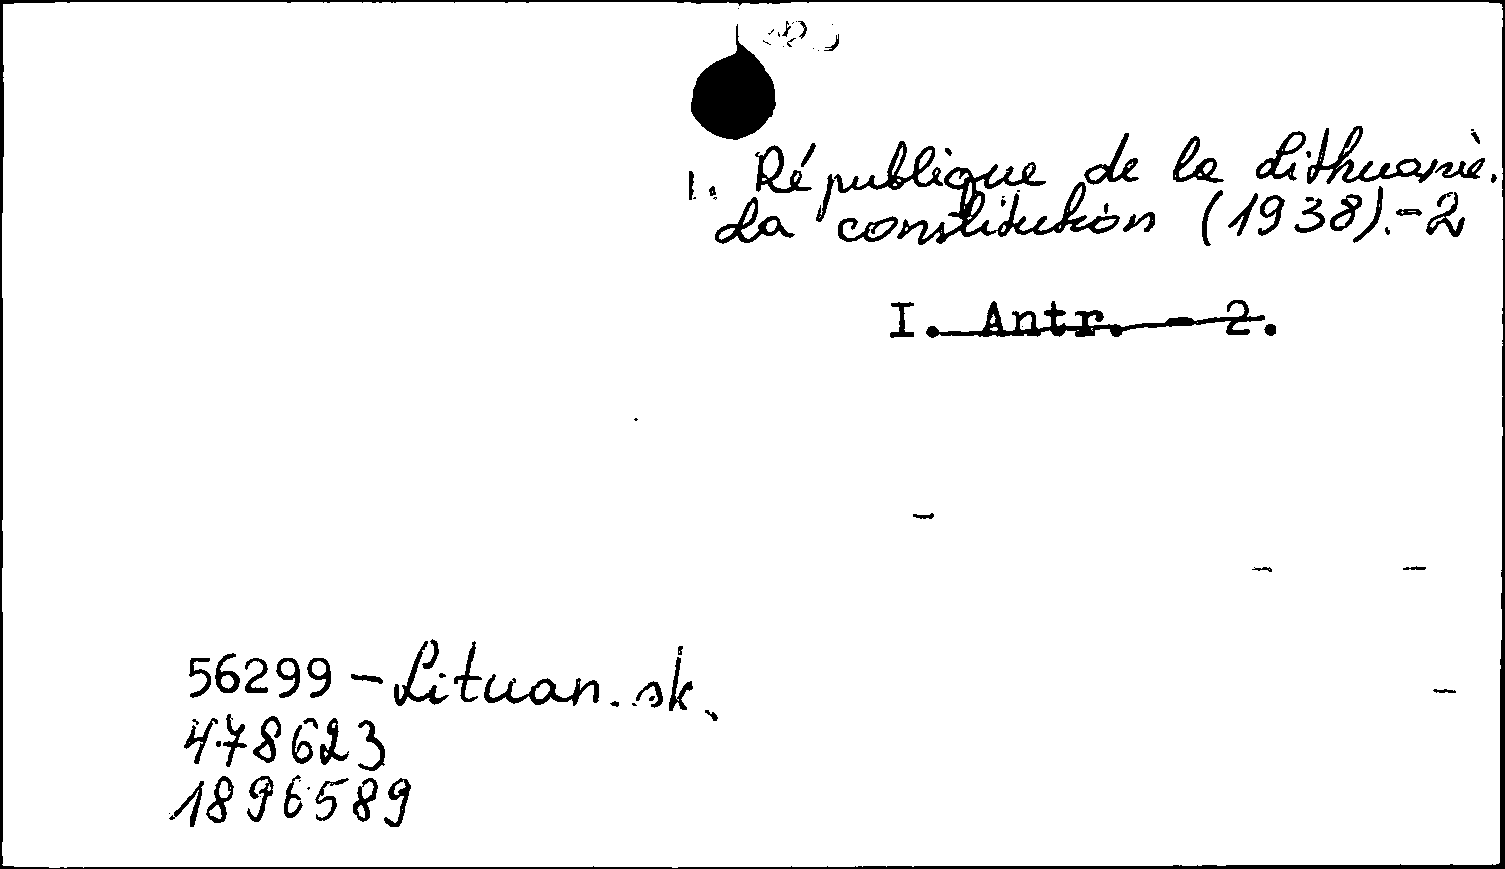 1. République de la Lithuanie.
La constitution (1938).-2
I. Antr. - 2.
56299 - Lituan. sk.
478623
1896589